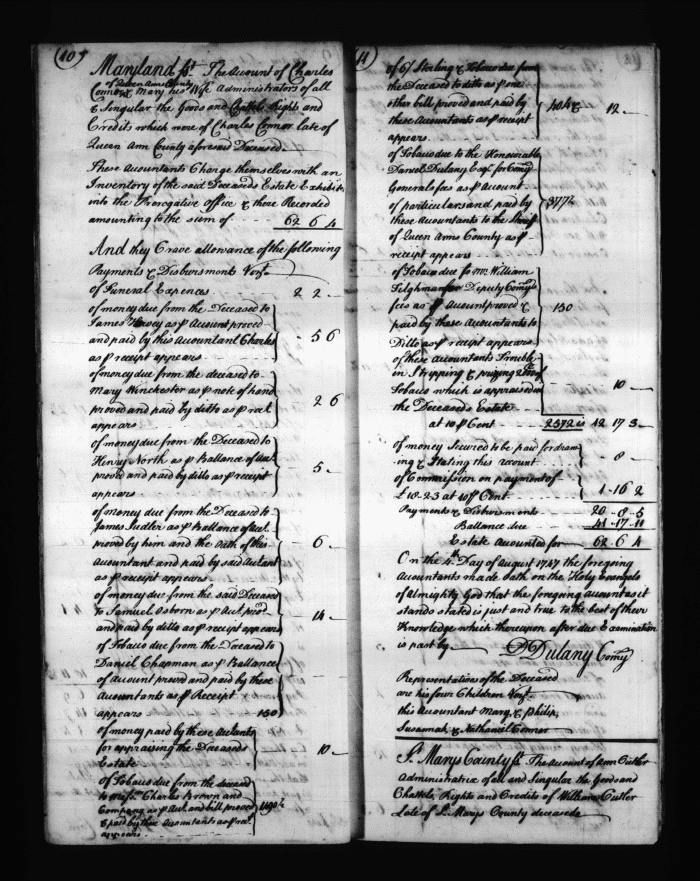 10
Maryland Sst. The Account of Charles
of Queen Anns County
Connor & Mary his Wife Administrators of all
& Singular the Goods and Chattels Rights and
Credits which were of Charles Connor late of
Queen Ann County aforesaid Deceased
These Accountants Charge themselves with an
Inventory of the said Deceaseds Estate Exhibited
into the Prerogative office & there Recorded
amounting to the sum of 62 6 4
And they Crave allowance of the following
Payments & Disbursments Vizt.
of Funeral Expences 2 2 —
of money due from the Deceased to
James Hovey as pr Account proved
and paid by this Accountant Charles
as pr receipt appears - 5 6
of money due from the deceased to
Mary Winchester as pr note of hand
proved and paid by ditto as pr rect.
appears - 2 6
of money due from the Deceased to
Henry North as pr Ballance of Acct.
proved and paid by ditto as pr receipt
appears - 5 -
of money due from the Deceased to
James Sudler as pr Ballance of acct.
proved by him and the Oath of this
Accountant and paid by said Accutant
as pr receipt appears - 6 -
of money due from the said Deceased
to Samuel Osborn as pr Acct. proved
and paid by ditto as pr receipt appears - 14 -
of Tobacco due from the Deceased to
Daniel Chapman as pr Ballance
of Account proved and paid by these
Accountants as pr Receipt
appears 150
of money paid by these Acctants
for appraising the Deceaseds
Estate 10 -
of Tobacco due from the deceased
to Messrs. Charles Brown and
Company as pr Acct. and bill proved
& paid by these Accountants as pr rect.
appears
11
of 6/ Sterling & Tobacco due from
the Deceased to ditto as pr one
other bill proved and paid by
these Accountants as pr receipt
appears 12 -
of Tobacco due to the Honourable
Daniel Dulany Esqr. for Comry
Generals fees as pr Account
of particulars and paid by
these Accountants to the Shriff
of Queen Anns County as pr
receipt appears 377½
of Tobacco due to Mr. William
Tilghman for Deputy Comrys
fees as pr Account proved &
paid by these Accountants to
Ditto as pr receipt appears 130
of these Accountants Trouble
in Stripping & prizing
Tobacco which is appraised in
the Deceaseds Estate 10 —
at 10 pr Cent 2572 is 12 17 3 -
of money Secured to be paid for draw
ing & Stating this account - 8 -
of Commission on payment of
£ 18-2-3 at 10 pr Cent 1 - 16 2
Payments & Disbursments 20 - 8 - 5
Ballance due 41 - 17 - 11
Estate Accounted for 62 6 4
On the 4th Day of August 1747 the foregoing
Accountants made Oath on the Holy Evangels
of Almighty God that the foregoing account as it
stands stated is just and true to the best of their
Knowledge which thereupon after due Examination
is past by D Dulany Comry
Representatives of the Deceased
are his four Children Vizt.
this Accountant Mary, & Philip,
Susannah, & Nathaniel Connor
St. Marys County Sst. The Account of Ann Cutler
Administratrix of all and Singular the Goods and
Chattels, Rights and Credits of William Cutler
Late of St. Marys County deceased